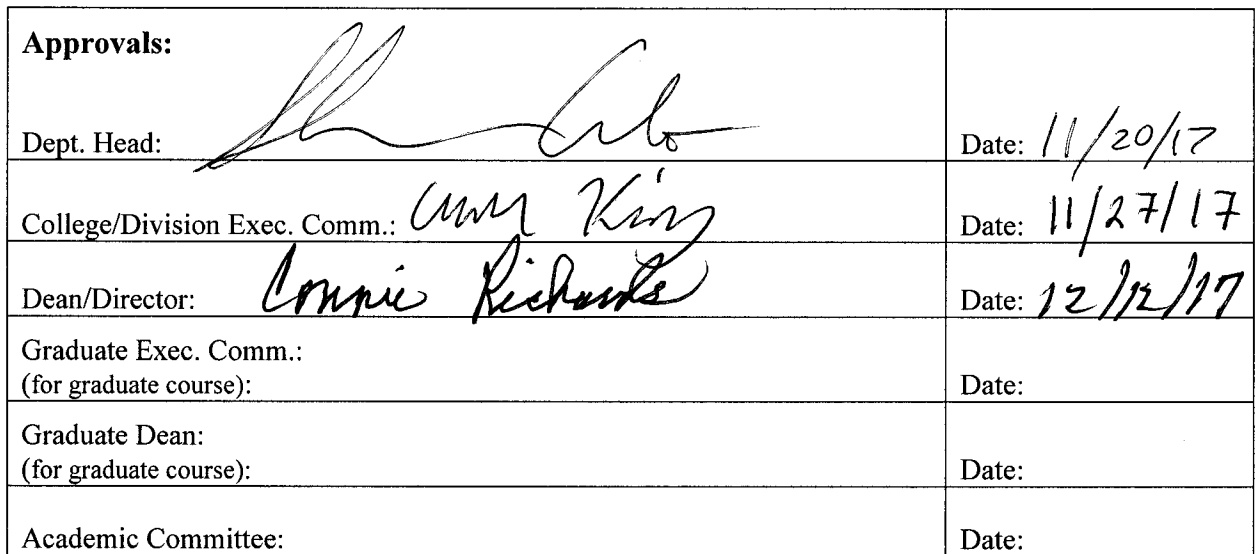 Approvals:
Dept. Head: Date: 11/20/17
College/Division Exec. Comm.: King Date: 11/27/17
Dean/Director: Connie Richards Date: 12/12/17
Graduate Exec. Comm.:
(for graduate course): Date:
Graduate Dean:
(for graduate course): Date:
Academic Committee: Date: